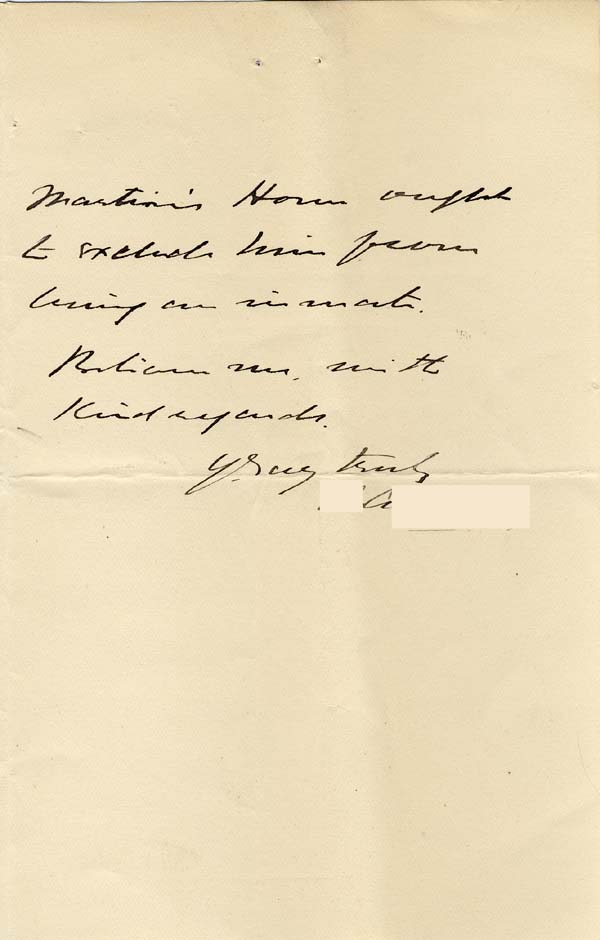 Martin's Home ought
to exclude him from
being an inmate.
Believe me, with
Kind regards.
Y. Very truly